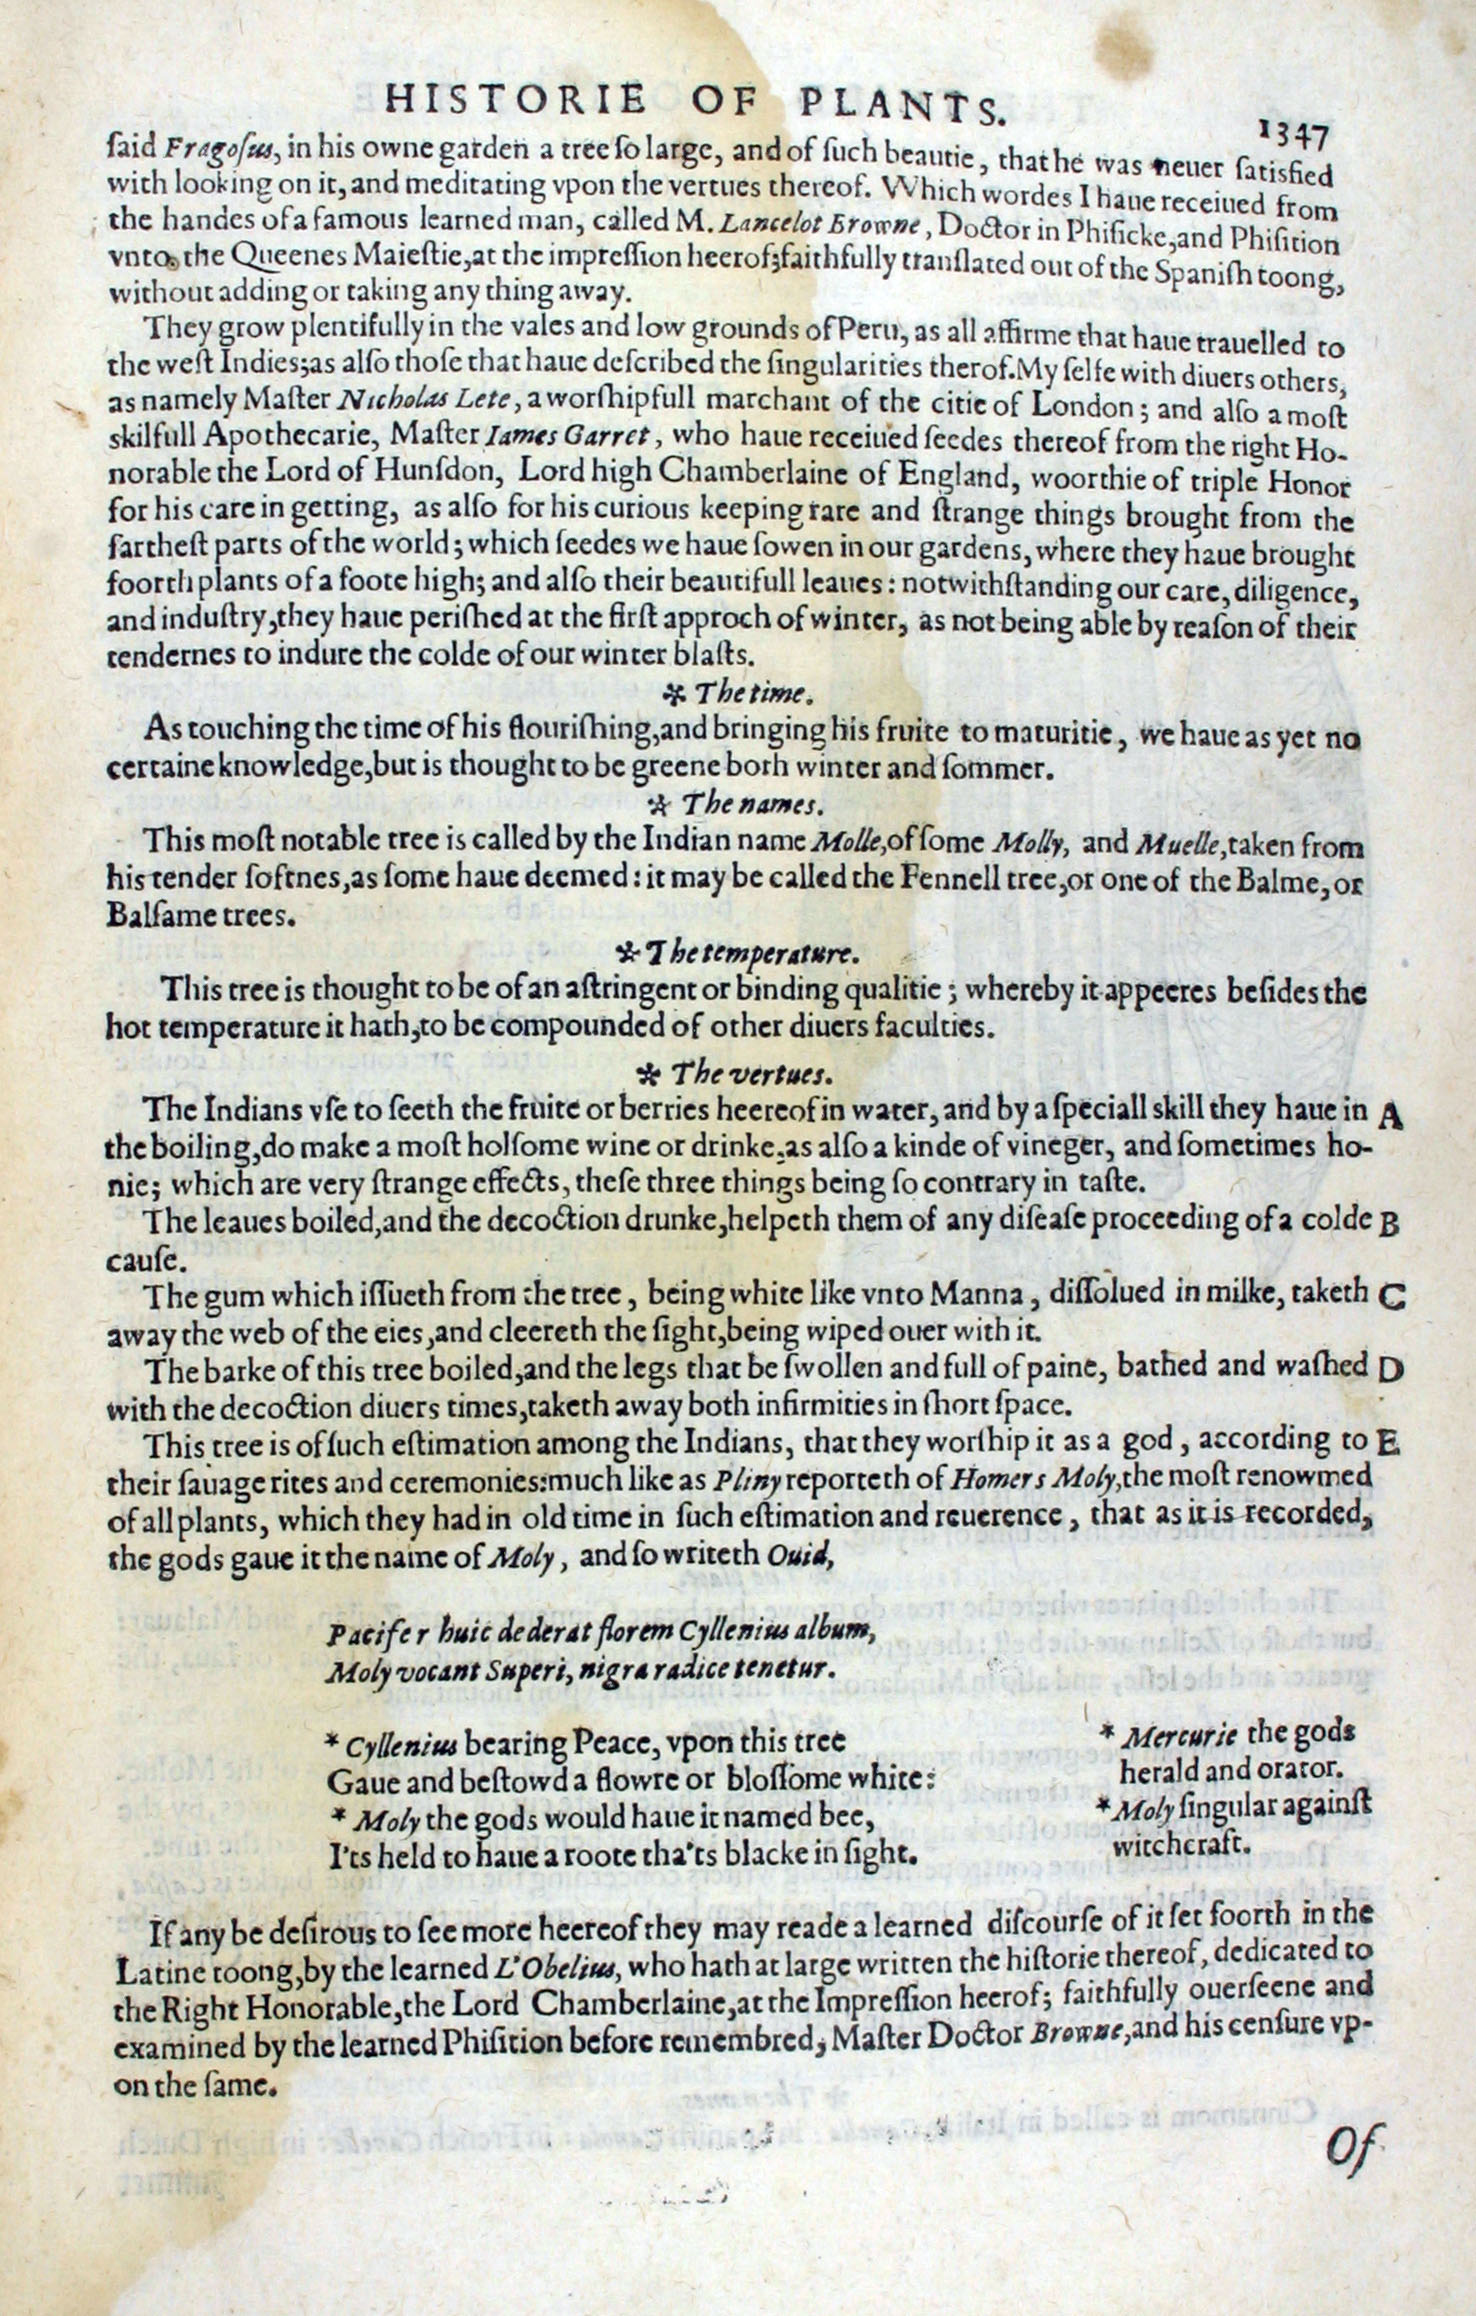 HISTORIE OF PLANTS. 1347
ſaid Fragoſus, in his owne garden a tree ſo large, and of ſuch beautie, that he was neuer ſatisfied
with looking on it, and meditating vpon the vertues thereof. Which wordes I haue receiued from
the handes of a famous learned man, called M. Lancelot Browne, Doctor in Phiſicke, and Phiſition
vnto the Queenes Maieſtie, at the impreſſion heerof; faithfully tranſlated out of the Spaniſh toong,
without adding or taking any thing away.
They grow plentifully in the vales and low grounds of Peru, as all affirme that haue trauelled to
the weſt Indies; as alſo thoſe that haue deſcribed the ſingularities therof. My ſelfe with diuers others,
as namely Maſter Nicholas Lete, a worſhipfull marchant of the citie of London; and alſo a moſt
skilfull Apothecarie, Maſter Iames Garret, who haue receiued ſeedes thereof from the right Ho-
norable the Lord of Hunſdon, Lord high Chamberlaine of England, woorthie of triple Honor
for his care in getting, as alſo for his curious keeping rare and ſtrange things brought from the
fartheſt parts of the world; which ſeedes we haue ſowen in our gardens, where they haue brought
foorth plants of a foote high; and alſo their beautifull leaues: notwithſtanding our care, diligence,
and induſtry, they haue periſhed at the firſt approch of winter, as not being able by reaſon of their
tendernes to indure the colde of our winter blaſts.
* The time.
As touching the time of his flouriſhing, and bringing his fruite to maturitie, we haue as yet no
certaine knowledge, but is thought to be greene both winter and ſommer.
* The names.
This moſt notable tree is called by the Indian name Molle, of ſome Molly, and Muelle, taken from
his tender ſoftnes, as ſome haue deemed: it may be called the Fennell tree, or one of the Balme, or
Balſame trees.
* The temperature.
This tree is thought to be of an aſtringent or binding qualitie; whereby it appeeres beſides the
hot temperature it hath, to be compounded of other diuers faculties.
* The vertues.
The Indians vſe to ſeeth the fruite or berries heereof in water, and by a ſpeciall skill they haue in A
the boiling, do make a moſt holſome wine or drinke, as alſo a kinde of vineger, and ſometimes ho-
nie; which are very ſtrange effects, theſe three things being ſo contrary in taſte.
The leaues boiled, and the decoction drunke, helpeth them of any diſeaſe proceeding of a colde B
cauſe.
The gum which iſſueth from the tree, being white like vnto Manna, diſſolued in milke, taketh C
away the web of the eies, and cleereth the ſight, being wiped ouer with it.
The barke of this tree boiled, and the legs that be ſwollen and full of paine, bathed and waſhed D
with the decoction diuers times, taketh away both infirmities in ſhort ſpace.
This tree is of ſuch eſtimation among the Indians, that they worſhip it as a god, according to E
their ſauage rites and ceremonies: much like as Pliny reporteth of Homers Moly, the moſt renowmed
of all plants, which they had in old time in ſuch eſtimation and reuerence, that as it is recorded,
the gods gaue it the name of Moly, and ſo writeth Ouid,
Pacifer huic dederat florem Cyllenius album,
Moly vocant Superi, nigra radice tenetur.
* Cyllenius bearing Peace, vpon this tree
Gaue and beſtowd a flowre or bloſſome white:
* Moly the gods would haue it named bee,
I'ts held to haue a roote tha'ts blacke in ſight.
* Mercurie the gods
herald and orator.
* Moly ſingular againſt
witchcraft.
If any be deſirous to ſee more heereof they may reade a learned diſcourſe of it ſet foorth in the
Latine toong, by the learned L'Obelius, who hath at large written the hiſtorie thereof, dedicated to
the Right Honorable, the Lord Chamberlaine, at the Impreſſion heerof; faithfully ouerſeene and
examined by the learned Phiſition before remembred, Maſter Doctor Browne, and his cenſure vp-
on the ſame.
Of